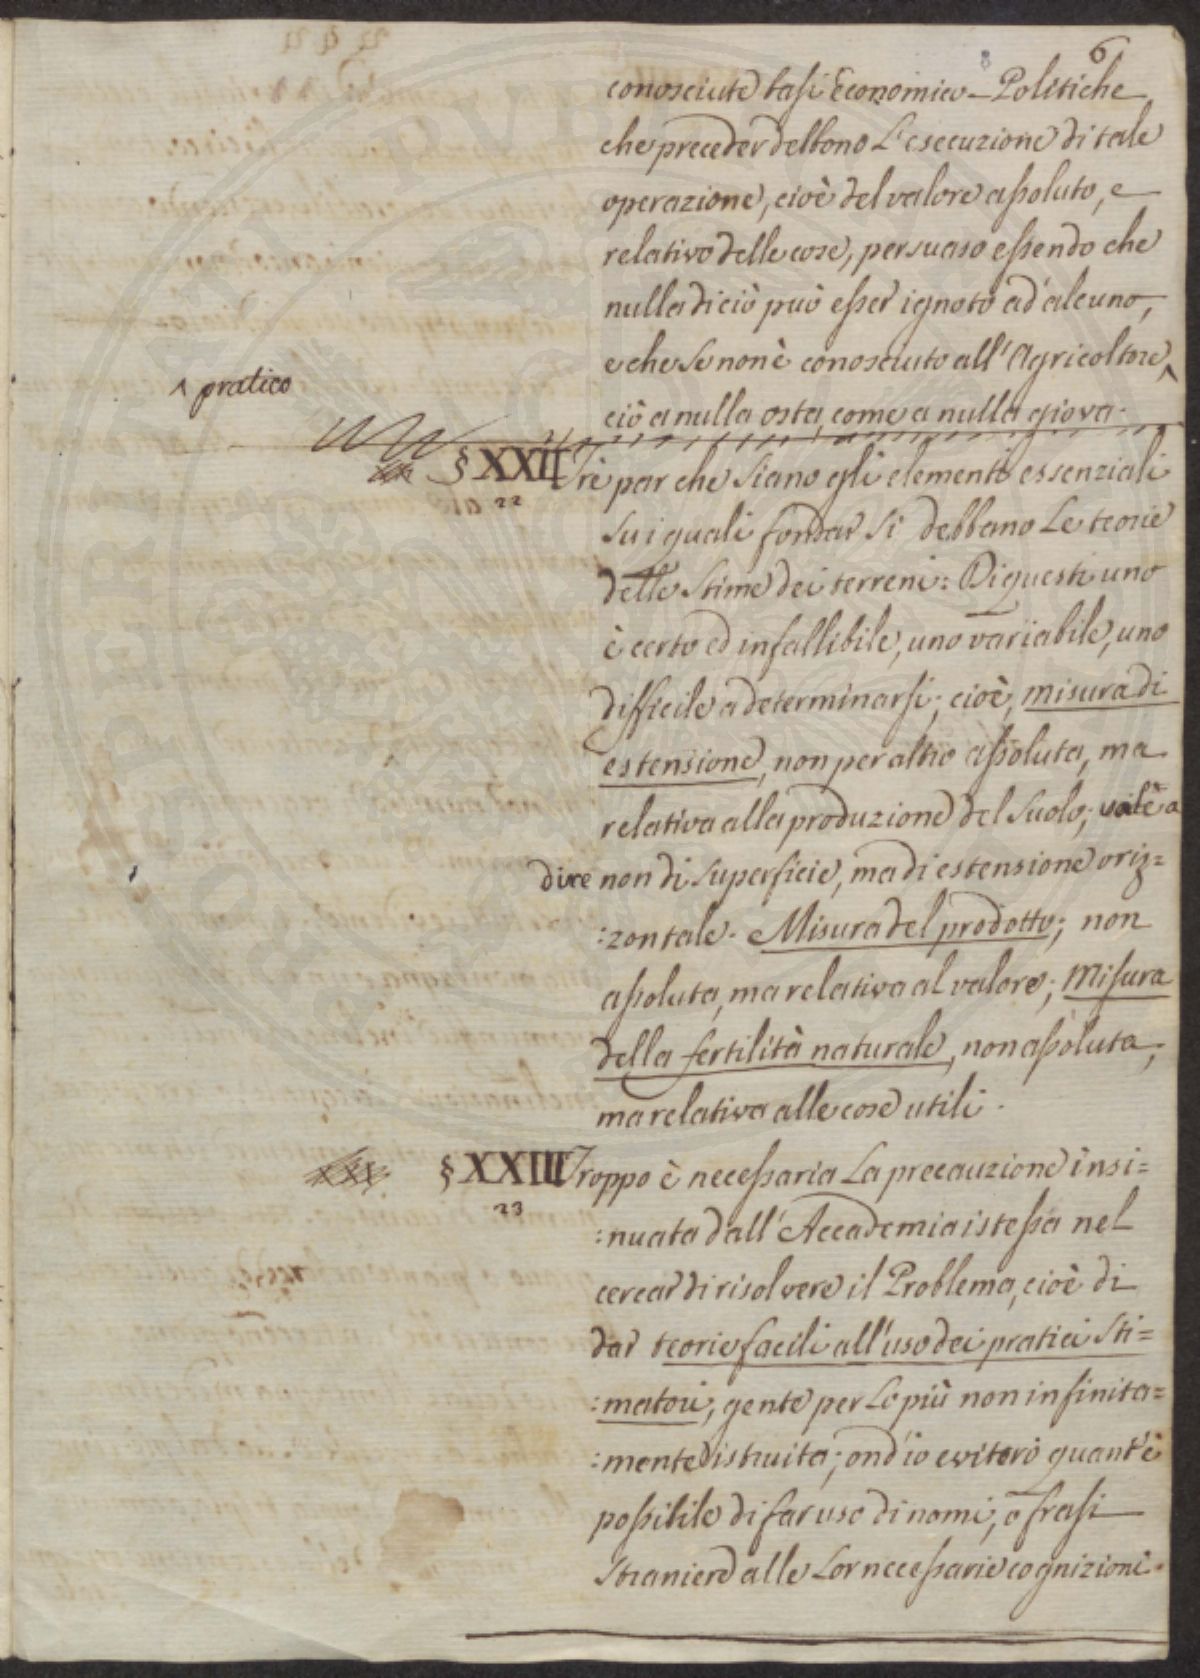 6
8
conosciute basi Economico-Politiche
che preceder debbono l'esecuzione di tale
operazione, cioè del valore assoluto, e
relativo delle cose, persuaso essendo che
nulla di ciò può esser ignoto ad'alcuno,
e che se non è conosciuto all'Agricoltore ^
^ pratico
ciò a nulla osta, come a nulla giova.
§ XXII Trè par che siano gli elementi essenziali
22
su i quali fondar si debbano le teorie
delle stime dei terreni: Di questi uno
è certo ed infallibile, uno variabile, uno
difficile a determinarsi; cioè, misura di
estensione, non per altro assoluta, ma
relativa alla produzione del suolo; valè a
dire non di superficie, ma di estensione oriz=
:zontale. Misura del prodotto; non
assoluta, ma relativa al valore; Misura
della fertilità naturale, non assoluta,
ma relativa alle cose utili.
§ XXIII Troppo è necessaria la precauzione insi=
23
:nuata dall'Accademia istessa nel
cercar di risolvere il Problema, cioè di
dar teorie facili all'uso dei pratici sti=
:matori, gente per lo più non infinita=
:mente istruita; ond'io eviterò quant'è
possibile di far uso di nomi, o frasi
straniere alle lor necessarie cognizioni.